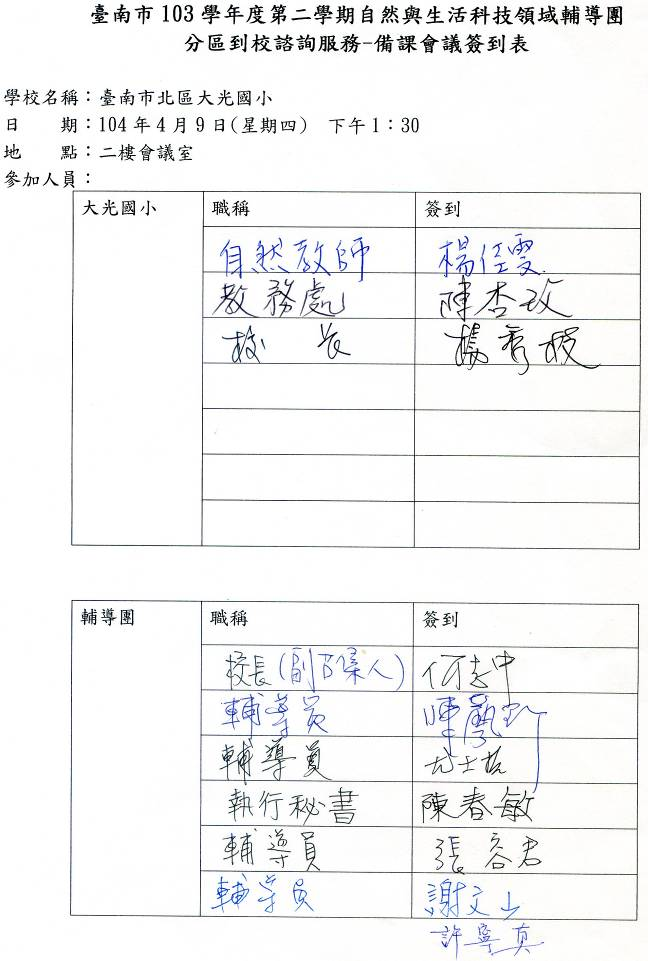 臺南市 103 學年度第二學期自然與生活科技領域輔導團
分區到校諮詢服務-備課會議簽到表
學校名稱：臺南市北區大光國小
日　　期：104 年 4 月 9 日(星期四)　下午 1：30
地　　點：二樓會議室
參加人員：
大光國小　職稱　簽到
自然教師　楊佳雯
教務處　陳杏玫
校長　楊秀枝
輔導團　職稱　簽到
校長(副召集人)　何志中
輔導員　陳
輔導員　尤士哲
執行秘書　陳春敏
輔導員　張容君
輔導員　謝文山
許寧真